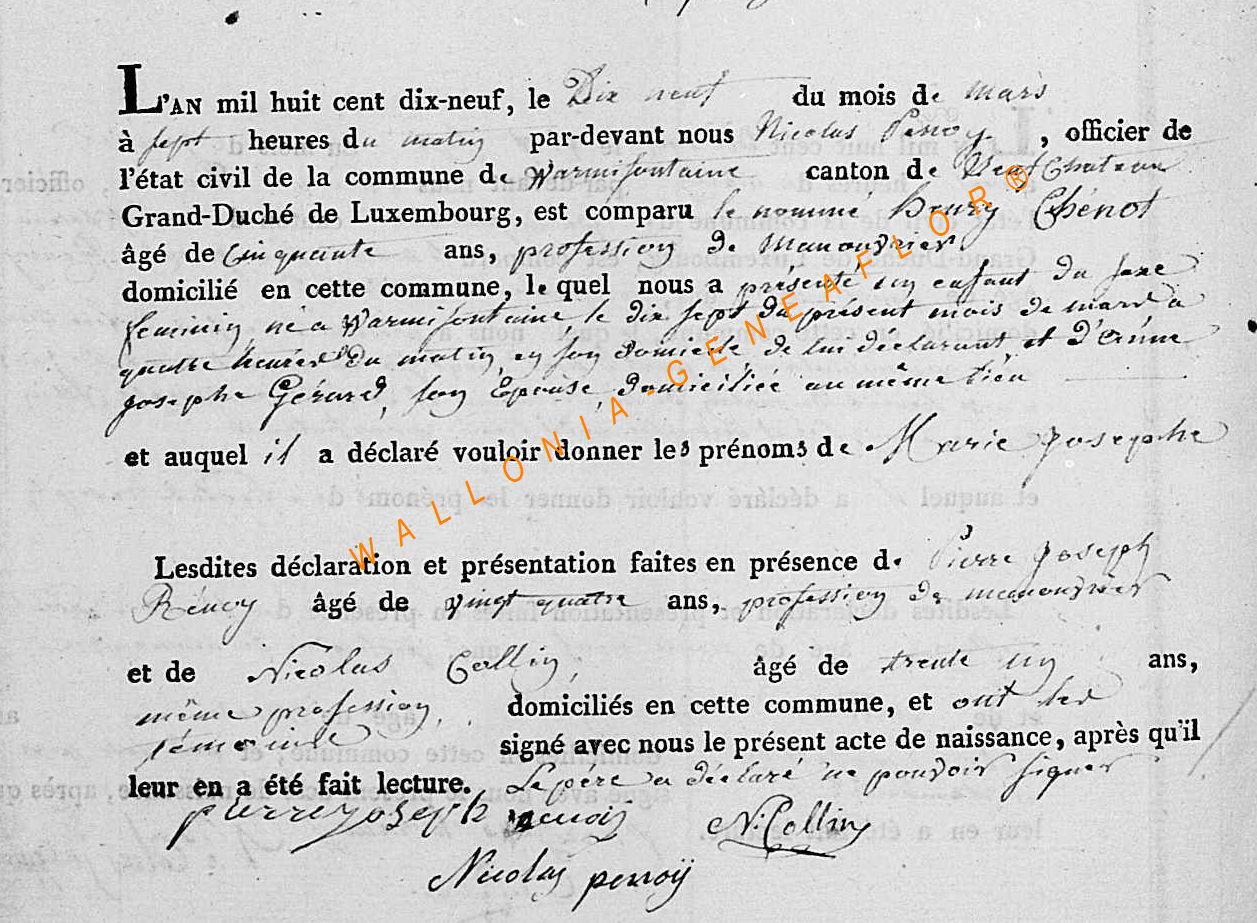 L'AN mil huit cent dix-neuf, le Dix neuf du mois de mars
à sept heures du matin par-devant nous Nicolas Perroy, officier de
l'état civil de la commune de Warmifontaine canton de Neufchateau
Grand-Duché de Luxembourg, est comparu le nommé henry Chénot
âgé de Cinquante ans, profession de Manouvrier
domicilié en cette commune, lequel nous a présenté un enfant du sexe
feminin, né a Warmifontaine le dix sept du présent mois de mars a
quatre heures du matin, en son domicile, de lui déclarant, et D'
josephe Gérard, son Epouse, domiciliée au même lieu
et auquel il a déclaré vouloir donner les prénoms de Marie josephe
Lesdites déclaration et présentation faites en présence de Pierre joseph
âgé de vingt quatre ans, profession de manouvrier
et de Nicolas Collin, âgé de trente un ans,
même profession, domiciliés en cette commune, et ont les
témoins signé avec nous le présent acte de naissance, après qu'il
leur en a été fait lecture. Le pere a déclaré ne pouvoir signer
pierre joseph N: Collin
Nicolas perroÿ
WALLONIA-GENEAFLOR®